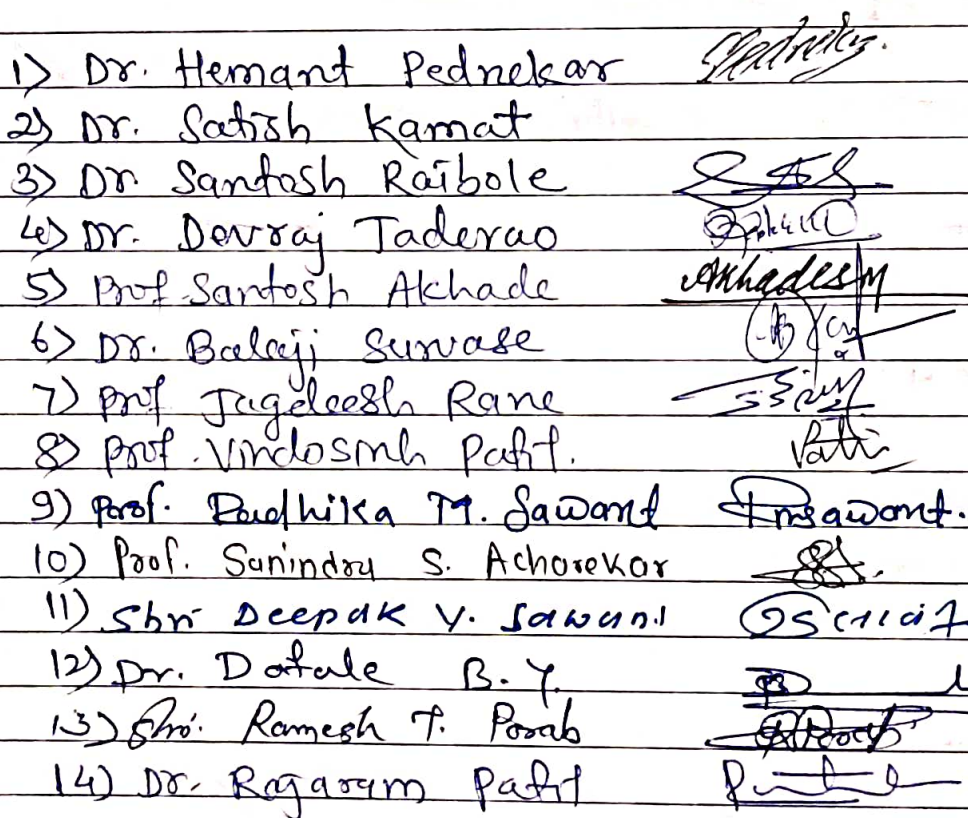 1) Dr. Hemant Pednekar Spednekar.
2) Dr. Satish Kamat
3) Dr. Santosh Raibole
4) Dr. Devraj Taderao
5) Prof Santosh Akhade AkhadeSM
6) Dr. Balaji Survase
7) Prof Jagdeesh Rane
8) Prof. Vindosinh Patil. Patil
9) Prof. Radhika M. Sawant Rmsawant.
10) Prof. Sanindra S. Acharekar
11) Shri Deepak V. Sawant
12) Dr. Datale B.Y.
13) Shri. Ramesh T. Parab
14) Dr. Rajaram Patil